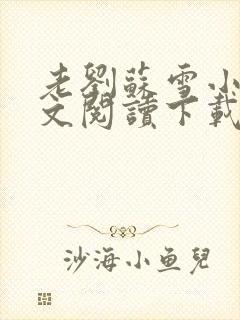 老劉蘇雪小
文閱讀下載
沙海小鱼兒